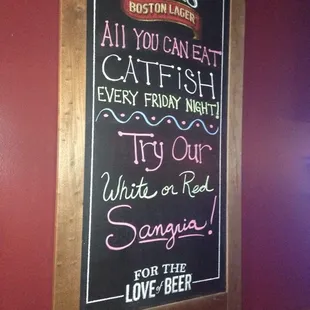 BOSTON LAGER
All YOU CAN EAT
CATFISH
EVERY FRIDAY NIGHT!
Try Our
White or Red
Sangria!
FOR THE
LOVE of BEER